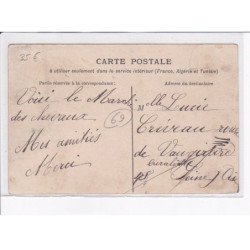 35 €
CARTE POSTALE
A utiliser seulement dans le service intérieur (France, Algérie et Tunisie)
Partie réservée à la correspondance
Adresse du destinataire
Voici le Marché
des chevaux
Mes amitiés
Merci
69
Mlle Lucie
Criveau rue
de Vaugirard